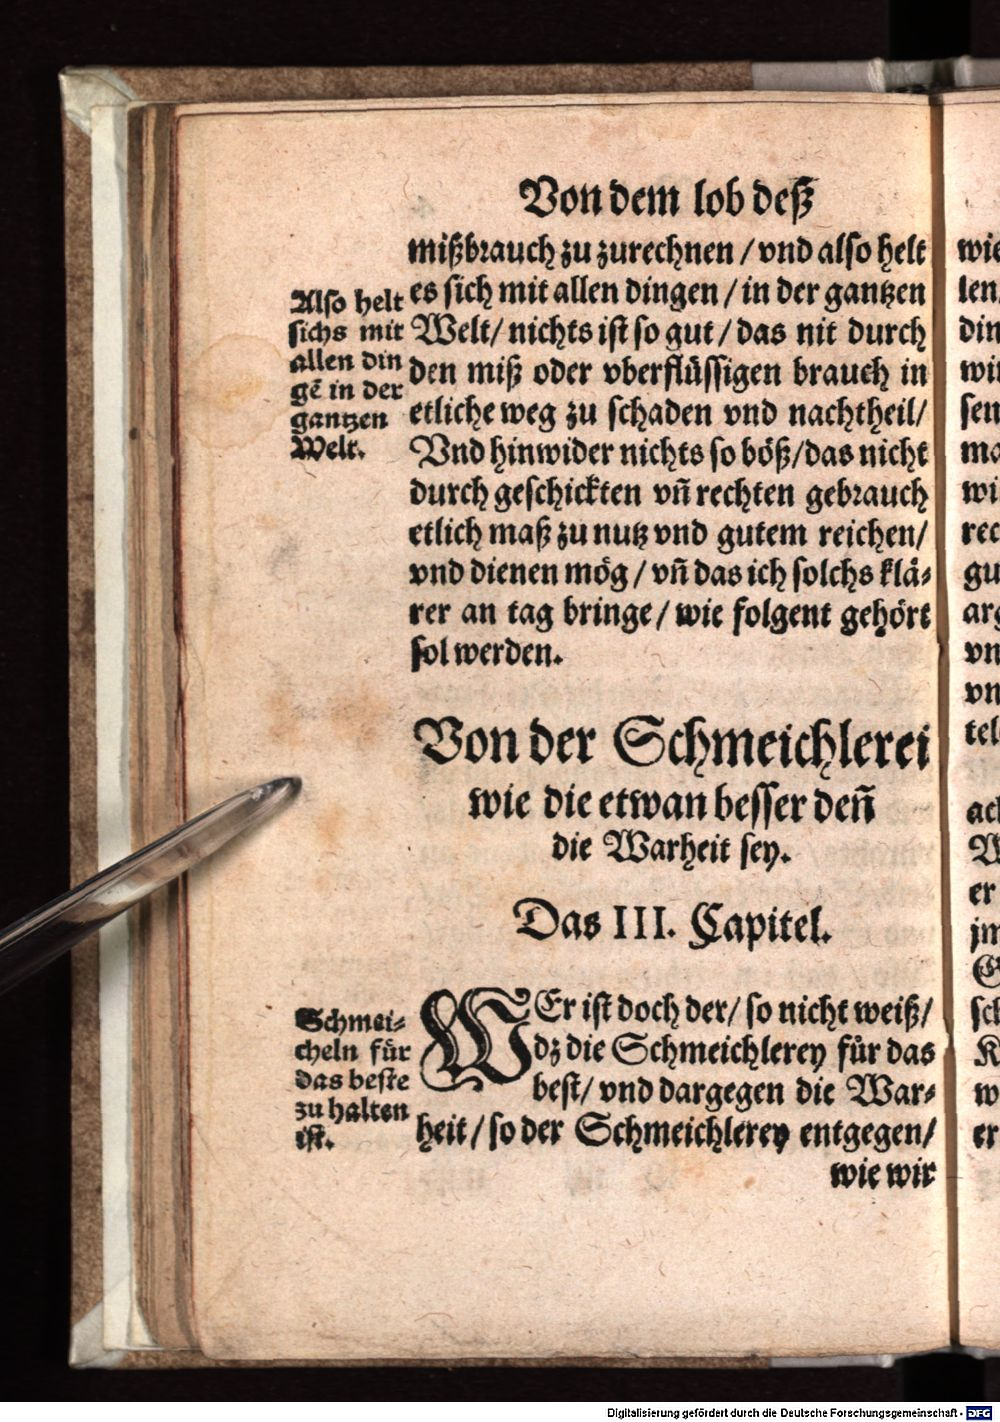 Von dem lob deß
mißbrauch zu zurechnen / vnd also helt
es sich mit allen dingen / in der gantzen
Welt / nichts ist so gut / das nit durch
den miß oder vberflüssigen brauch in
etliche weg zu schaden vnd nachtheil /
Vnd hinwider nichts so böß / das nicht
durch geschickten vñ rechten gebrauch
etlich maß zu nutz vnd gutem reichen /
vnd dienen mög / vñ das ich solchs klä⸗
rer an tag bringe / wie folgent gehört
sol werden.
Also helt
sichs mit
allen din
gẽ in der
gantzen
Welt.
Von der Schmeichlerei
wie die etwan besser deñ
die Warheit sey.
Das III. Capitel.
WEr ist doch der / so nicht weiß /
dz die Schmeichlerey für das
best / vnd dargegen die War⸗
heit / so der Schmeichlerey entgegen /
wie wir
Schmei⸗
cheln für
das beste
zu halten
ist.
wie
len
din
wi
sen
ma
wi
rec
gu
arg
vn
vn
tel
ac
W
er
jm
G
sch
K
w
er
Digitalisierung gefördert durch die Deutsche Forschungsgemeinschaft - DFG